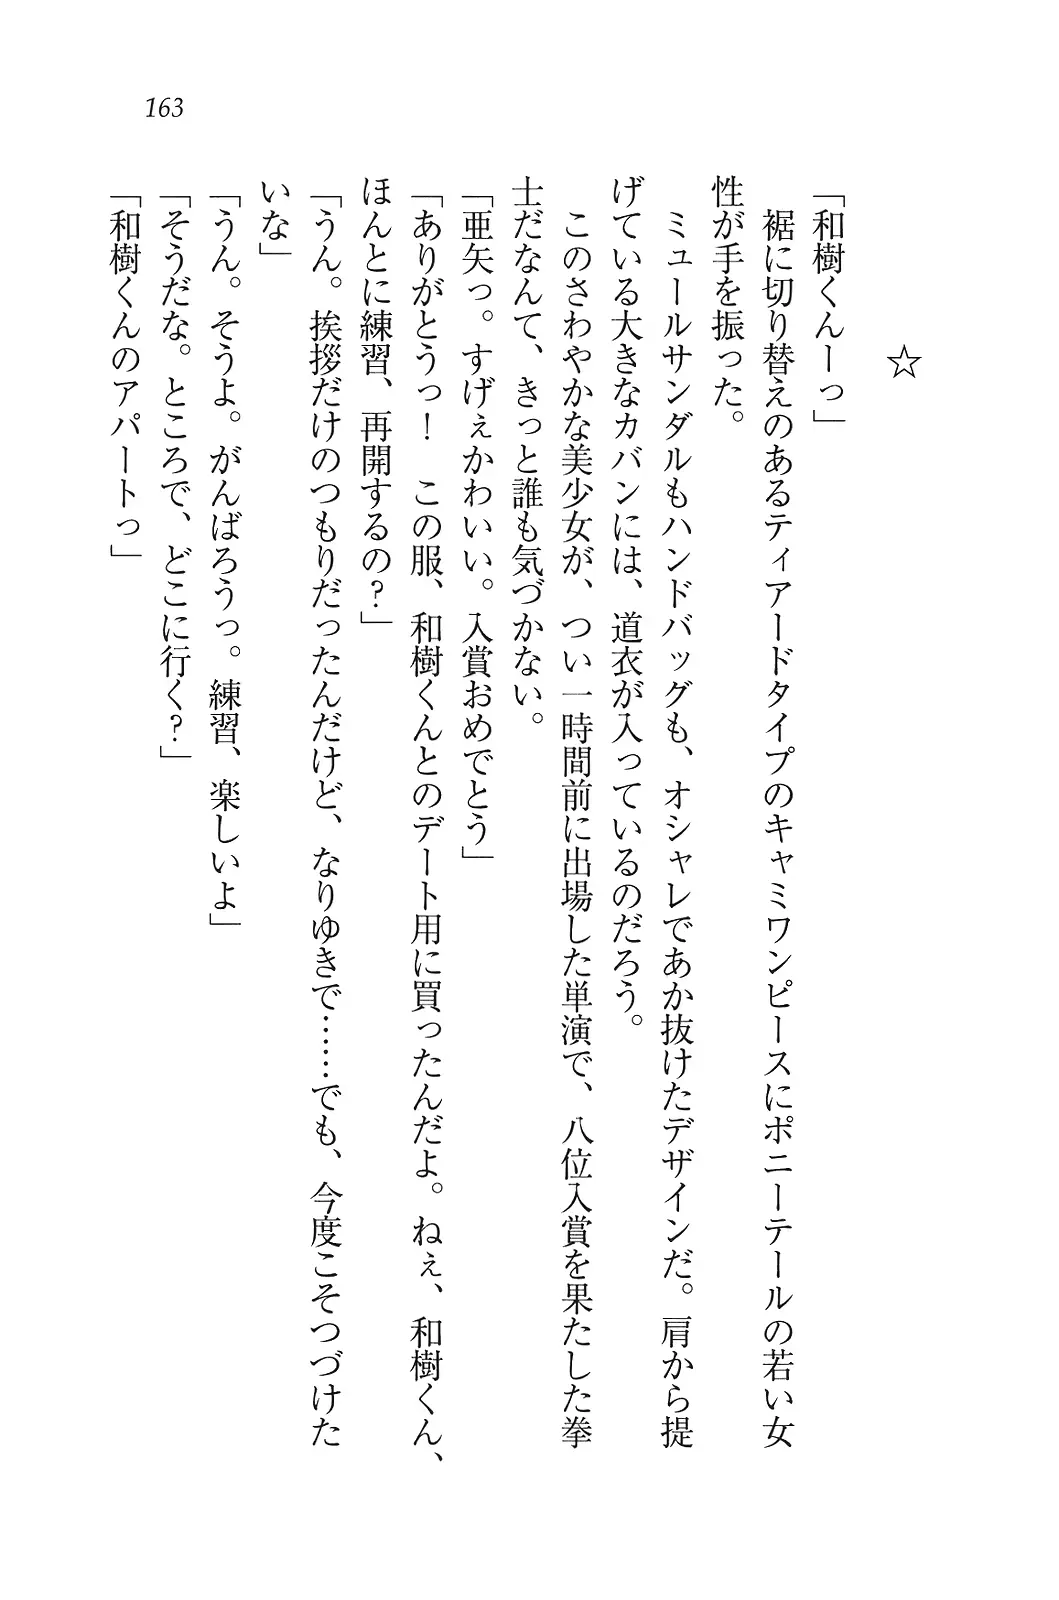 163
☆
「和樹くんーっ」
　裾に切り替えのあるティアードタイプのキャミワンピースにポニーテールの若い女
性が手を振った。
　ミュールサンダルもハンドバッグも、オシャレであか抜けたデザインだ。肩から提
げている大きなカバンには、道衣が入っているのだろう。
　このさわやかな美少女が、つい一時間前に出場した単演で、八位入賞を果たした拳
士だなんて、きっと誰も気づかない。
「亜矢っ。すげぇかわいい。入賞おめでとう」
「ありがとうっ！　この服、和樹くんとのデート用に買ったんだよ。ねぇ、和樹くん、
ほんとに練習、再開するの？」
「うん。挨拶だけのつもりだったんだけど、なりゆきで……でも、今度こそつづけた
いな」
「うん。そうよ。がんばろうっ。練習、楽しいよ」
「そうだな。ところで、どこに行く？」
「和樹くんのアパートっ」